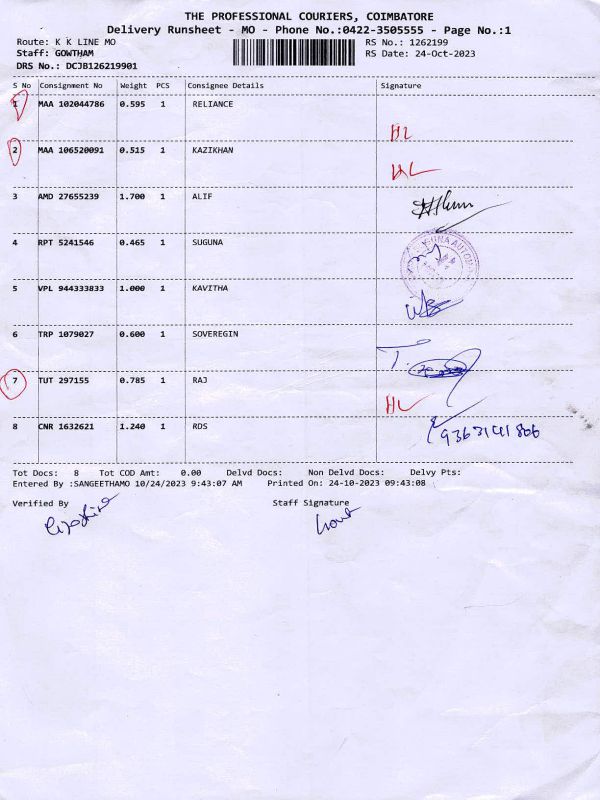 THE PROFESSIONAL COURIERS, COIMBATORE
Delivery Runsheet - MO - Phone No.:0422-3505555 - Page No.:1
Route: K K LINE MO RS No.: 1262199
Staff: GOWTHAM RS Date: 24-Oct-2023
DRS No.: DCJB126219901
S No Consignment No Weight PCS Consignee Details Signature
1 MAA 102044786 0.595 1 RELIANCE
HL
2 MAA 106520091 0.515 1 KAZIKHAN
HL
3 AMD 27655239 1.700 1 ALIF
4 RPT 5241546 0.465 1 SUGUNA
5 VPL 944333833 1.000 1 KAVITHA
6 TRP 1079027 0.600 1 SOVEREGIN
7 TUT 297155 0.785 1 RAJ
HL
8 CNR 1632621 1.240 1 RDS
9363141806
Tot Docs: 8 Tot COD Amt: 0.00 Delvd Docs: Non Delvd Docs: Delvy Pts:
Entered By :SANGEETHAMO 10/24/2023 9:43:07 AM Printed On: 24-10-2023 09:43:08
Verified By Staff Signature